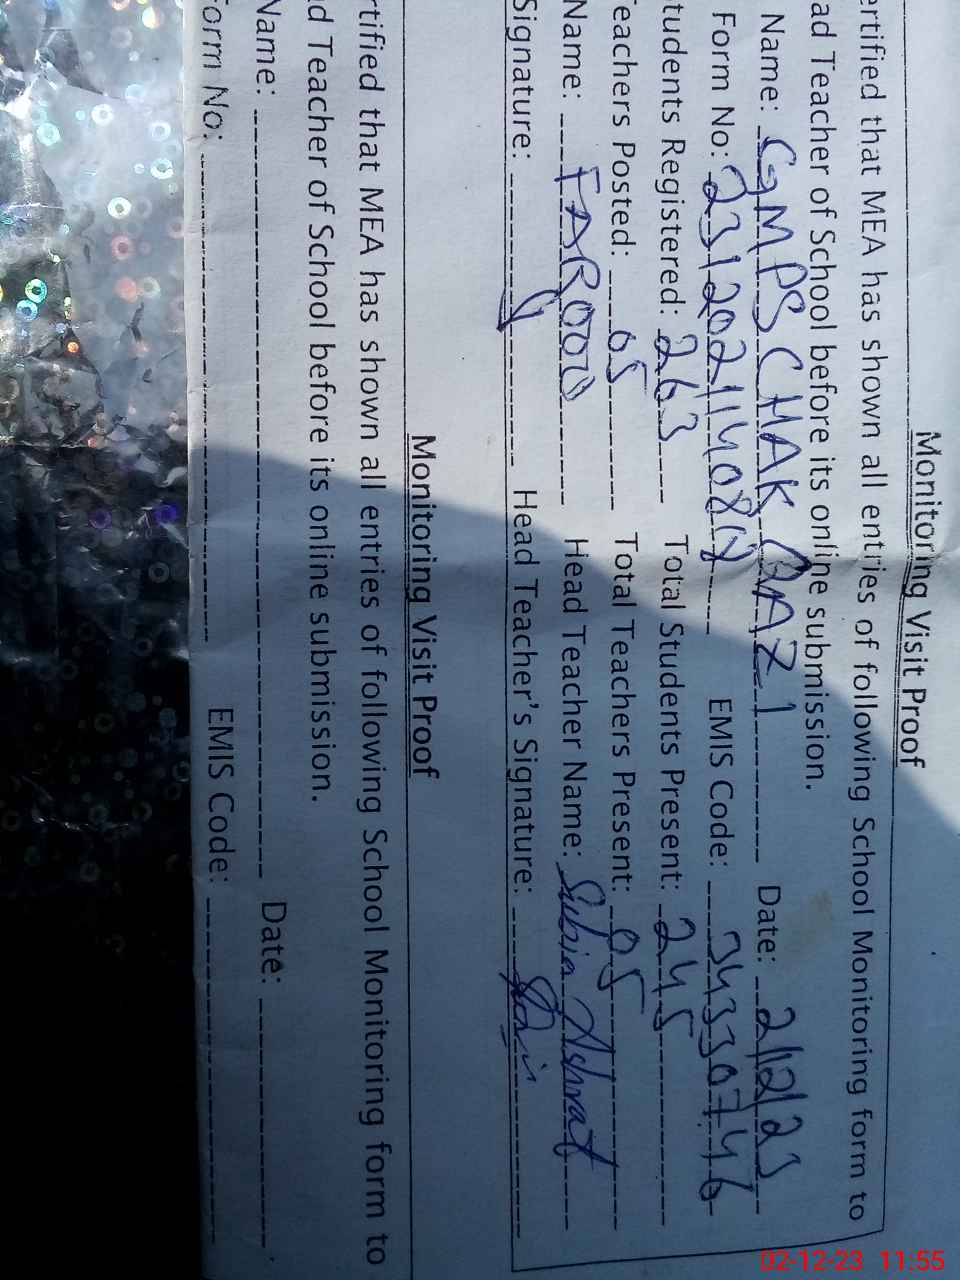 Monitoring Visit Proof
ertified that MEA has shown all entries of following School Monitoring form to
ad Teacher of School before its online submission.
Name: GMPS CHAK QAZI Date: 2/12/23
Form No: Total Students EMIS Code: 34330746
tudents Registered: 263 Total Students Present: 245
eachers Posted: 05 Total Teachers Present: 05
Name: FAROOQ Head Teacher Name: Subia Ashraf
Signature: Head Teacher's Signature:
Monitoring Visit Proof
rtified that MEA has shown all entries of following School Monitoring form to
d Teacher of School before its online submission.
Name: Date:
Form No: EMIS Code:
02-12-23 11:55